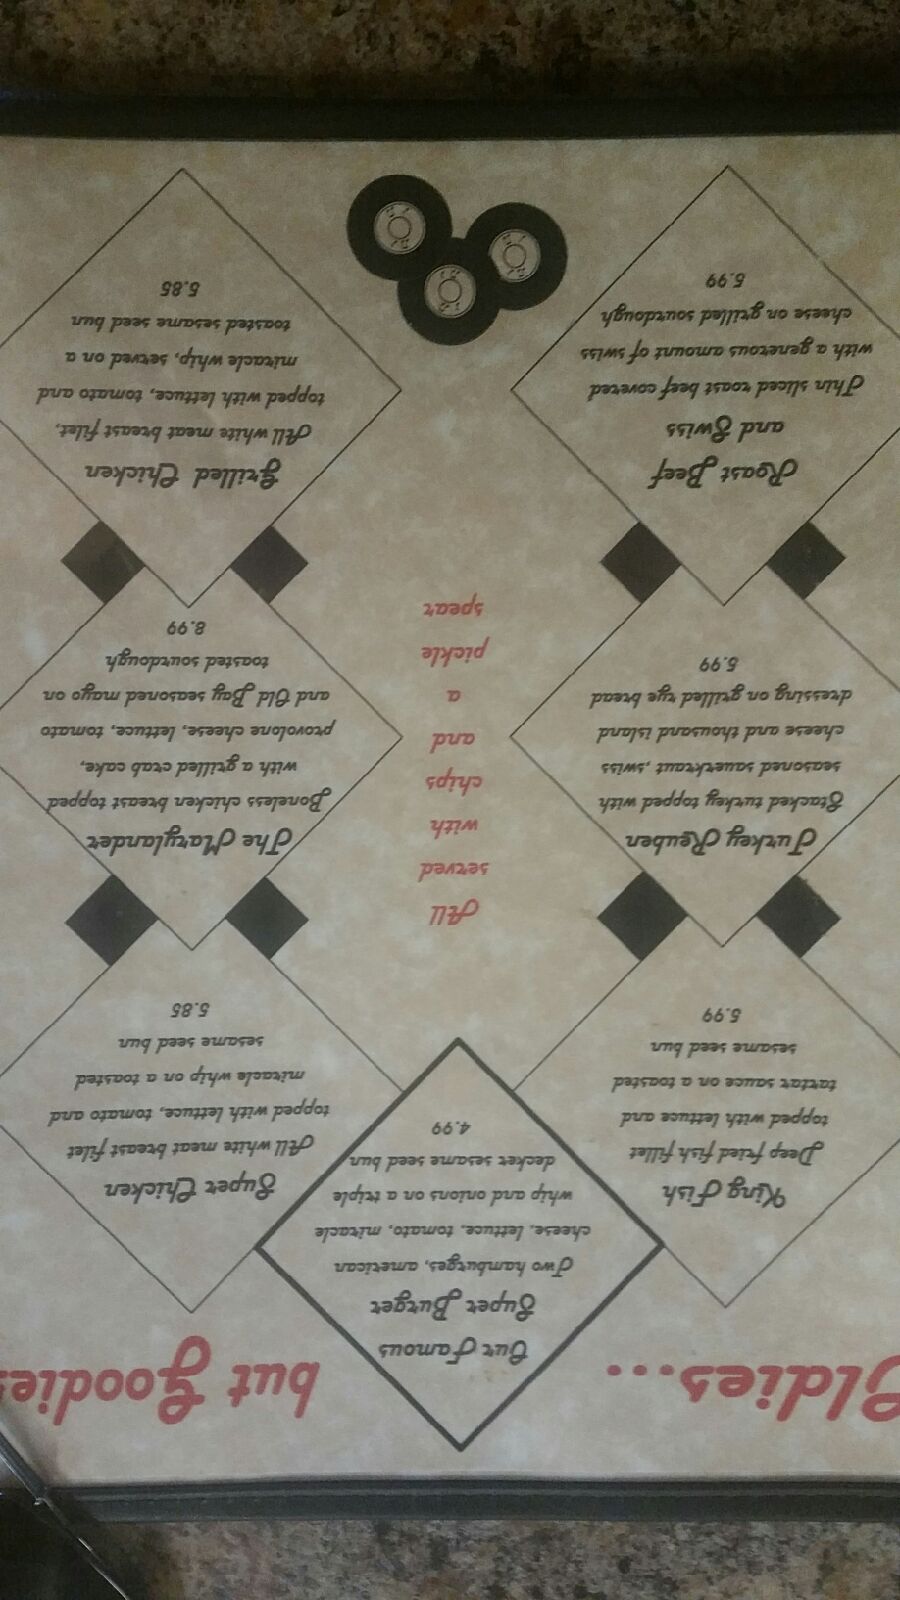 Oldies...
but Goodies
Our Famous
Super Burger
Two hamburges, american
cheese, lettuce, tomato, miracle
whip and onions on a triple
decker sesame seed bun
4.99
King Fish
Deep fried fish fillet
topped with lettuce and
tartar sauce on a toasted
sesame seed bun
5.99
Super Chicken
All white meat breast filet
topped with lettuce, tomato, and
miracle whip on a toasted
sesame seed bun
5.85
Turkey Reuben
Stacked turkey topped with
seasoned sauerkraut ,swiss
cheese and thousand island
dressing on grilled rye bread
5.99
All
served
with
chips
and
a
pickle
spear
The Marylander
Boneless chicken breast topped
with a grilled crab cake,
provolone cheese, lettuce, tomato
and Old Bay seasoned mayo on
toasted sourdough
8.99
Roast Beef
and Swiss
Thin sliced roast beef covered
with a generous amount of swiss
cheese on grilled sourdough
5.99
Grilled Chicken
All white meat breast filet,
topped with lettuce, tomato and
miracle whip, served on a
toasted sesame seed bun
5.85